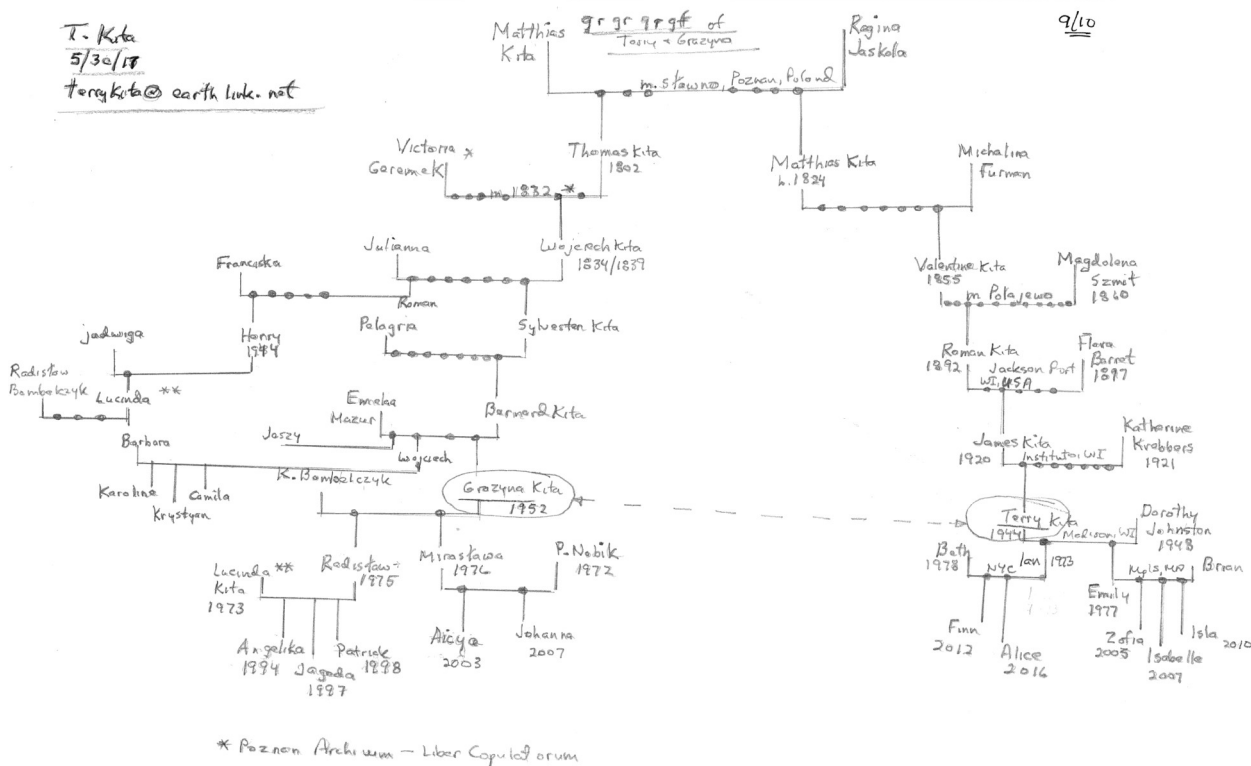 T. Kita
5/30/17
terrykita@earthlink.net
9/10
gr gr gr gf of
Terry + Grazyna
Matthias
Kita
Regina
Jaskola
m. Sławno, Poznan, Poland
Victoria *
Geremek
Thomas Kita
1802
m. 1832 *
Matthias Kita
b. 1824
Michalina
Furman
Julianna
Wojciech Kita
1834/1839
Franciska
Roman
Valentine Kita
1855
m Połajewo
Magdolena
Szmit
1860
Jadwiga
Henry
1944
Pelagria
Sylvester Kita
Roman Kita
1892
Jackson Port
WI, USA
Flora
Barret
1897
Radisłow
Bombelczyk
Lucinda **
Emelia
Mazur
Bernard Kita
Barbara
Jaszy
Wojciech
James Kita
1920
Institute, WI
Katherine
Krebbers
1921
Karolina
Krystyan
Camila
K. Bombelczyk
Grazyna Kita
1952
Terry Kita
1944
Madison, WI
Dorothy
Johnston
1948
Lucinda **
Kita
1973
Radisław
1975
Mirosława
1976
P. Nobik
1972
Beth
1978
NYC
Ian 1973
Emily
1977
Mpls, MN
Brian
Angelika
1994
Jagoda
1997
Patriak
1998
Alicya
2003
Johanna
2007
Finn
2012
Alice
2016
Zofia
2005
Isabelle
2007
Isla
2010
* Poznan Archiwum – Liber Copulatorum